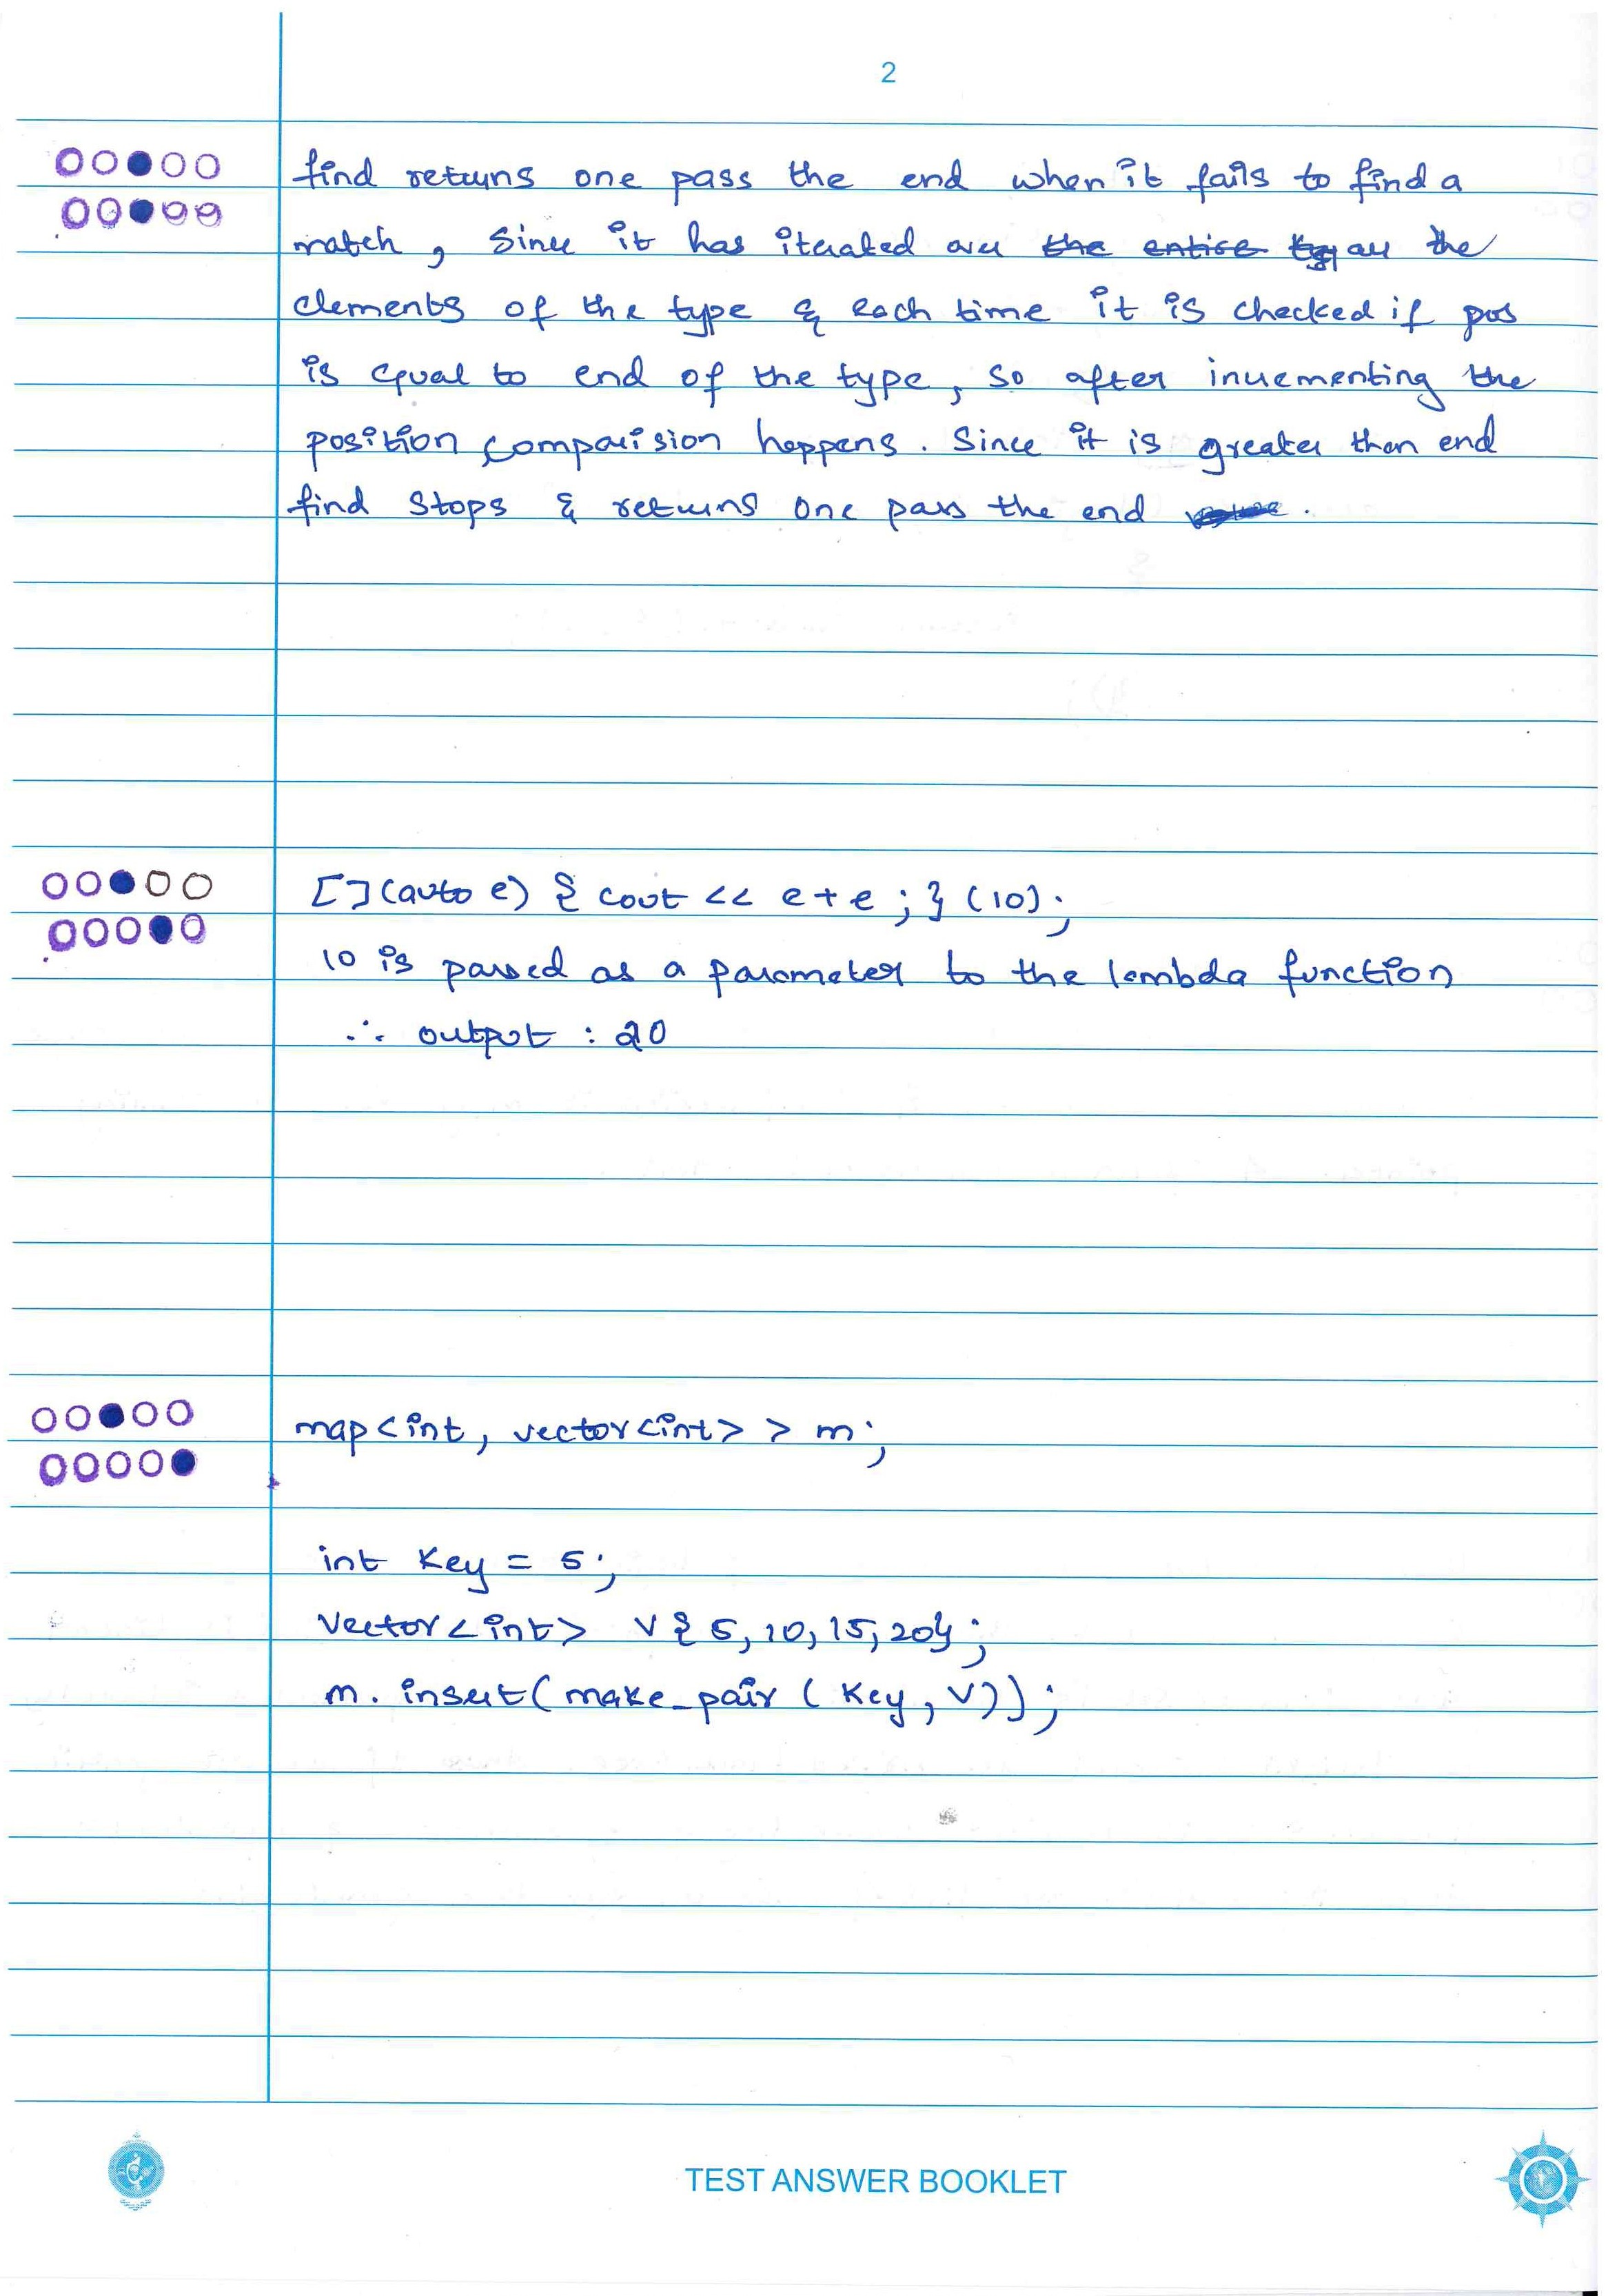 2
find returns one pass the end when it fails to find a
match, since it has iterated over the entire all the
elements of the type & each time it is checked if pos
is equal to end of the type, so after incrementing the
position comparision happens. Since it is greater than end
find stops & returns one pass the end.
[](auto e) { cout << e+e ; } (10);
10 is passed as a parameter to the lambda function
∴ output : 20
map<int, vector<int> > m;
int key = 5;
vector<int> v{5, 10, 15, 20};
m. insert(make_pair (key, v));
TEST ANSWER BOOKLET